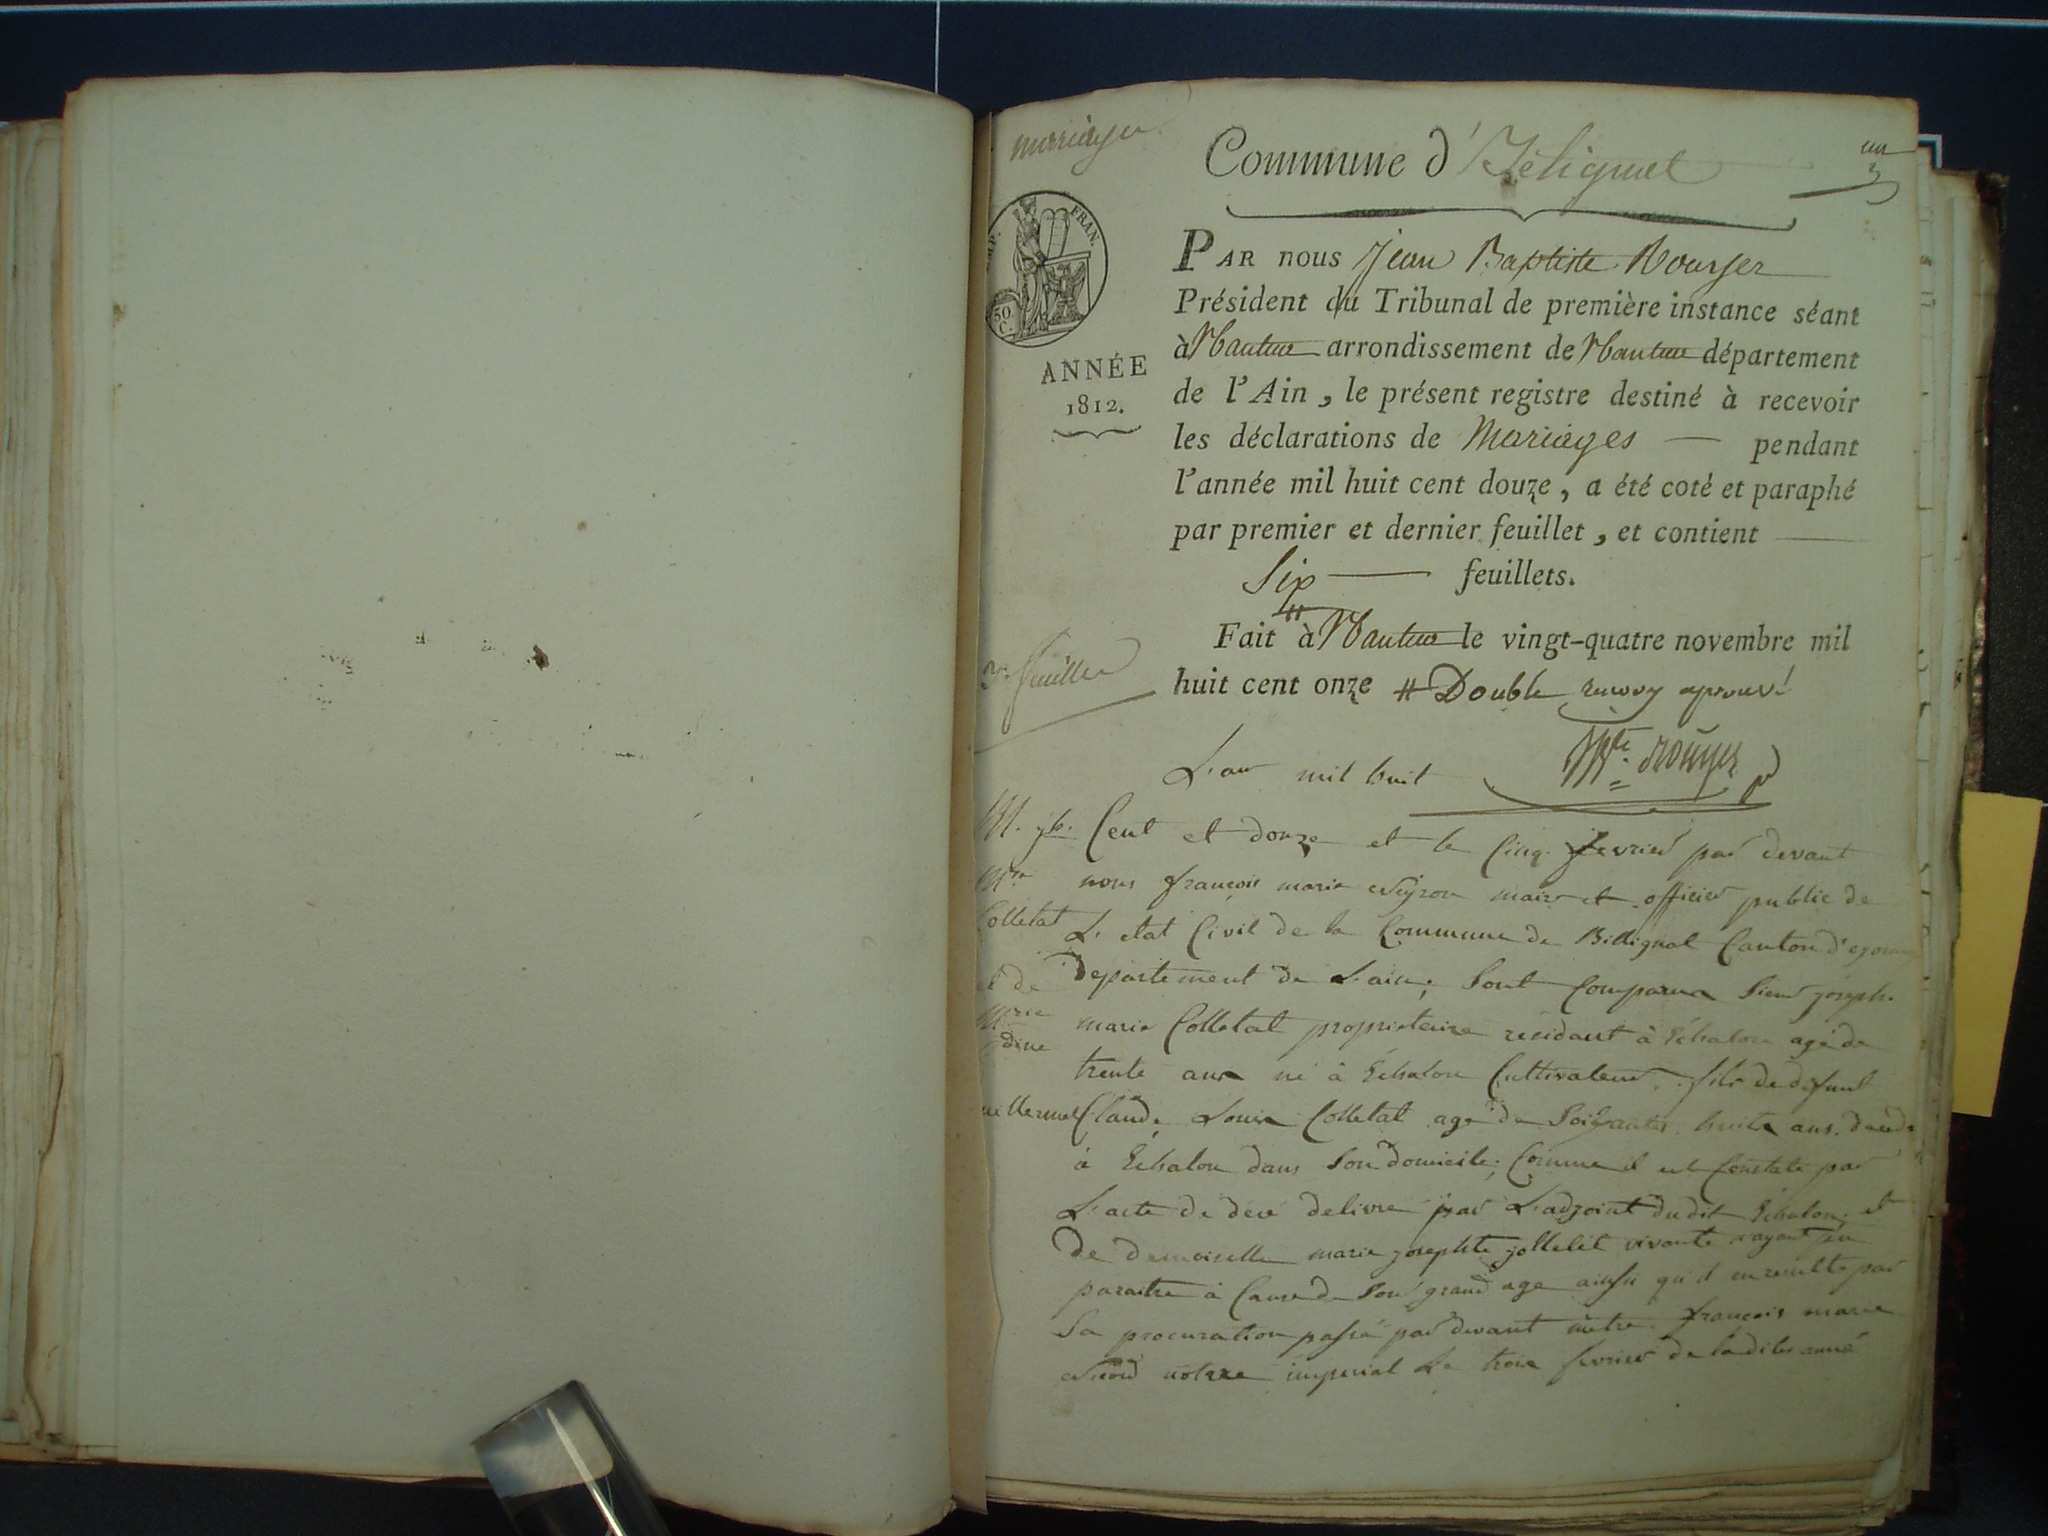 mariages
Commune d'Béligniet
un
IMP. FRAN.
50.
C.
ANNÉE
1812.
PAR nous Jean Baptiste Rouyer
Président du Tribunal de première instance séant
à Nantua arrondissement de Nantua département
de l'Ain, le présent registre destiné à recevoir
les déclarations de Mariages pendant
l'année mil huit cent douze, a été coté et paraphé
par premier et dernier feuillet, et contient
Six feuillets.
Fait à Nantua le vingt-quatre novembre mil
huit cent onze # Double renvoy aprouvé
3 feuilles
Jn Bte. Rouyer
L'an mil huit
M. jh. Cent et douze et le Cinq fevrier par devant
Mie nous françois marie Neyron maire et officier public de
Colletat L'etat Civil de la Commune de Billignat Canton d'
et de Departement de L'ain, Sont Comparus Sieur joseph
Mrie marie Colletat proprietaire résidant à Echalon agé de
dine trente ans né à Echalon Cultivateur fils de défunt
Claude Louis Colletat agé de Soixante huit ans décédé
à Echalon dans Son domicile, Comme il est Constaté par
L'acte de décé delivré par L'adjoint dudit Echalon et
de demoiselle marie josephte jolletet vivante n'ayant pu
paraitre à Cause de Son grand age ainsi qu'il en resulte par
Sa procuration passée par devant metre françois marie
notaire imperial Le trois fevrier de la dite année